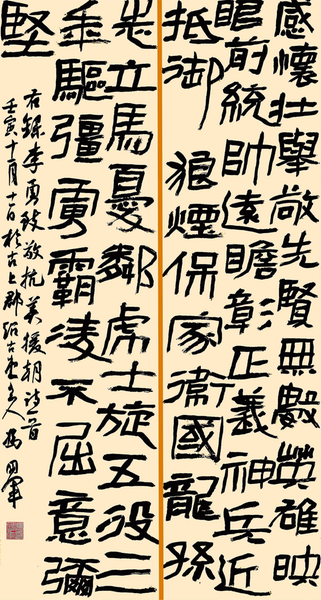 感懷壯舉敬先賢無數英雄映
眼前統帥遠瞻彰正義神兵近
抵御狼煙保家衛國龍孫
志立馬憂鄰虎士旋五役三
年驅彊虜霸凌不屈意彌
堅
右錄李勇致敬抗美援朝詩一首
壬寅十月十日於古上郡古堂主人馮